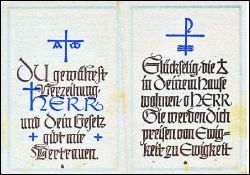 DU gewährst
Verzeihung,
HERR
und dein Gesetz
gibt mir
Vertrauen.
Glückselig, die
in deinem Hause
wohnen, o HERR
Sie werden dich
preisen von Ewig=
keit zu Ewigkeit